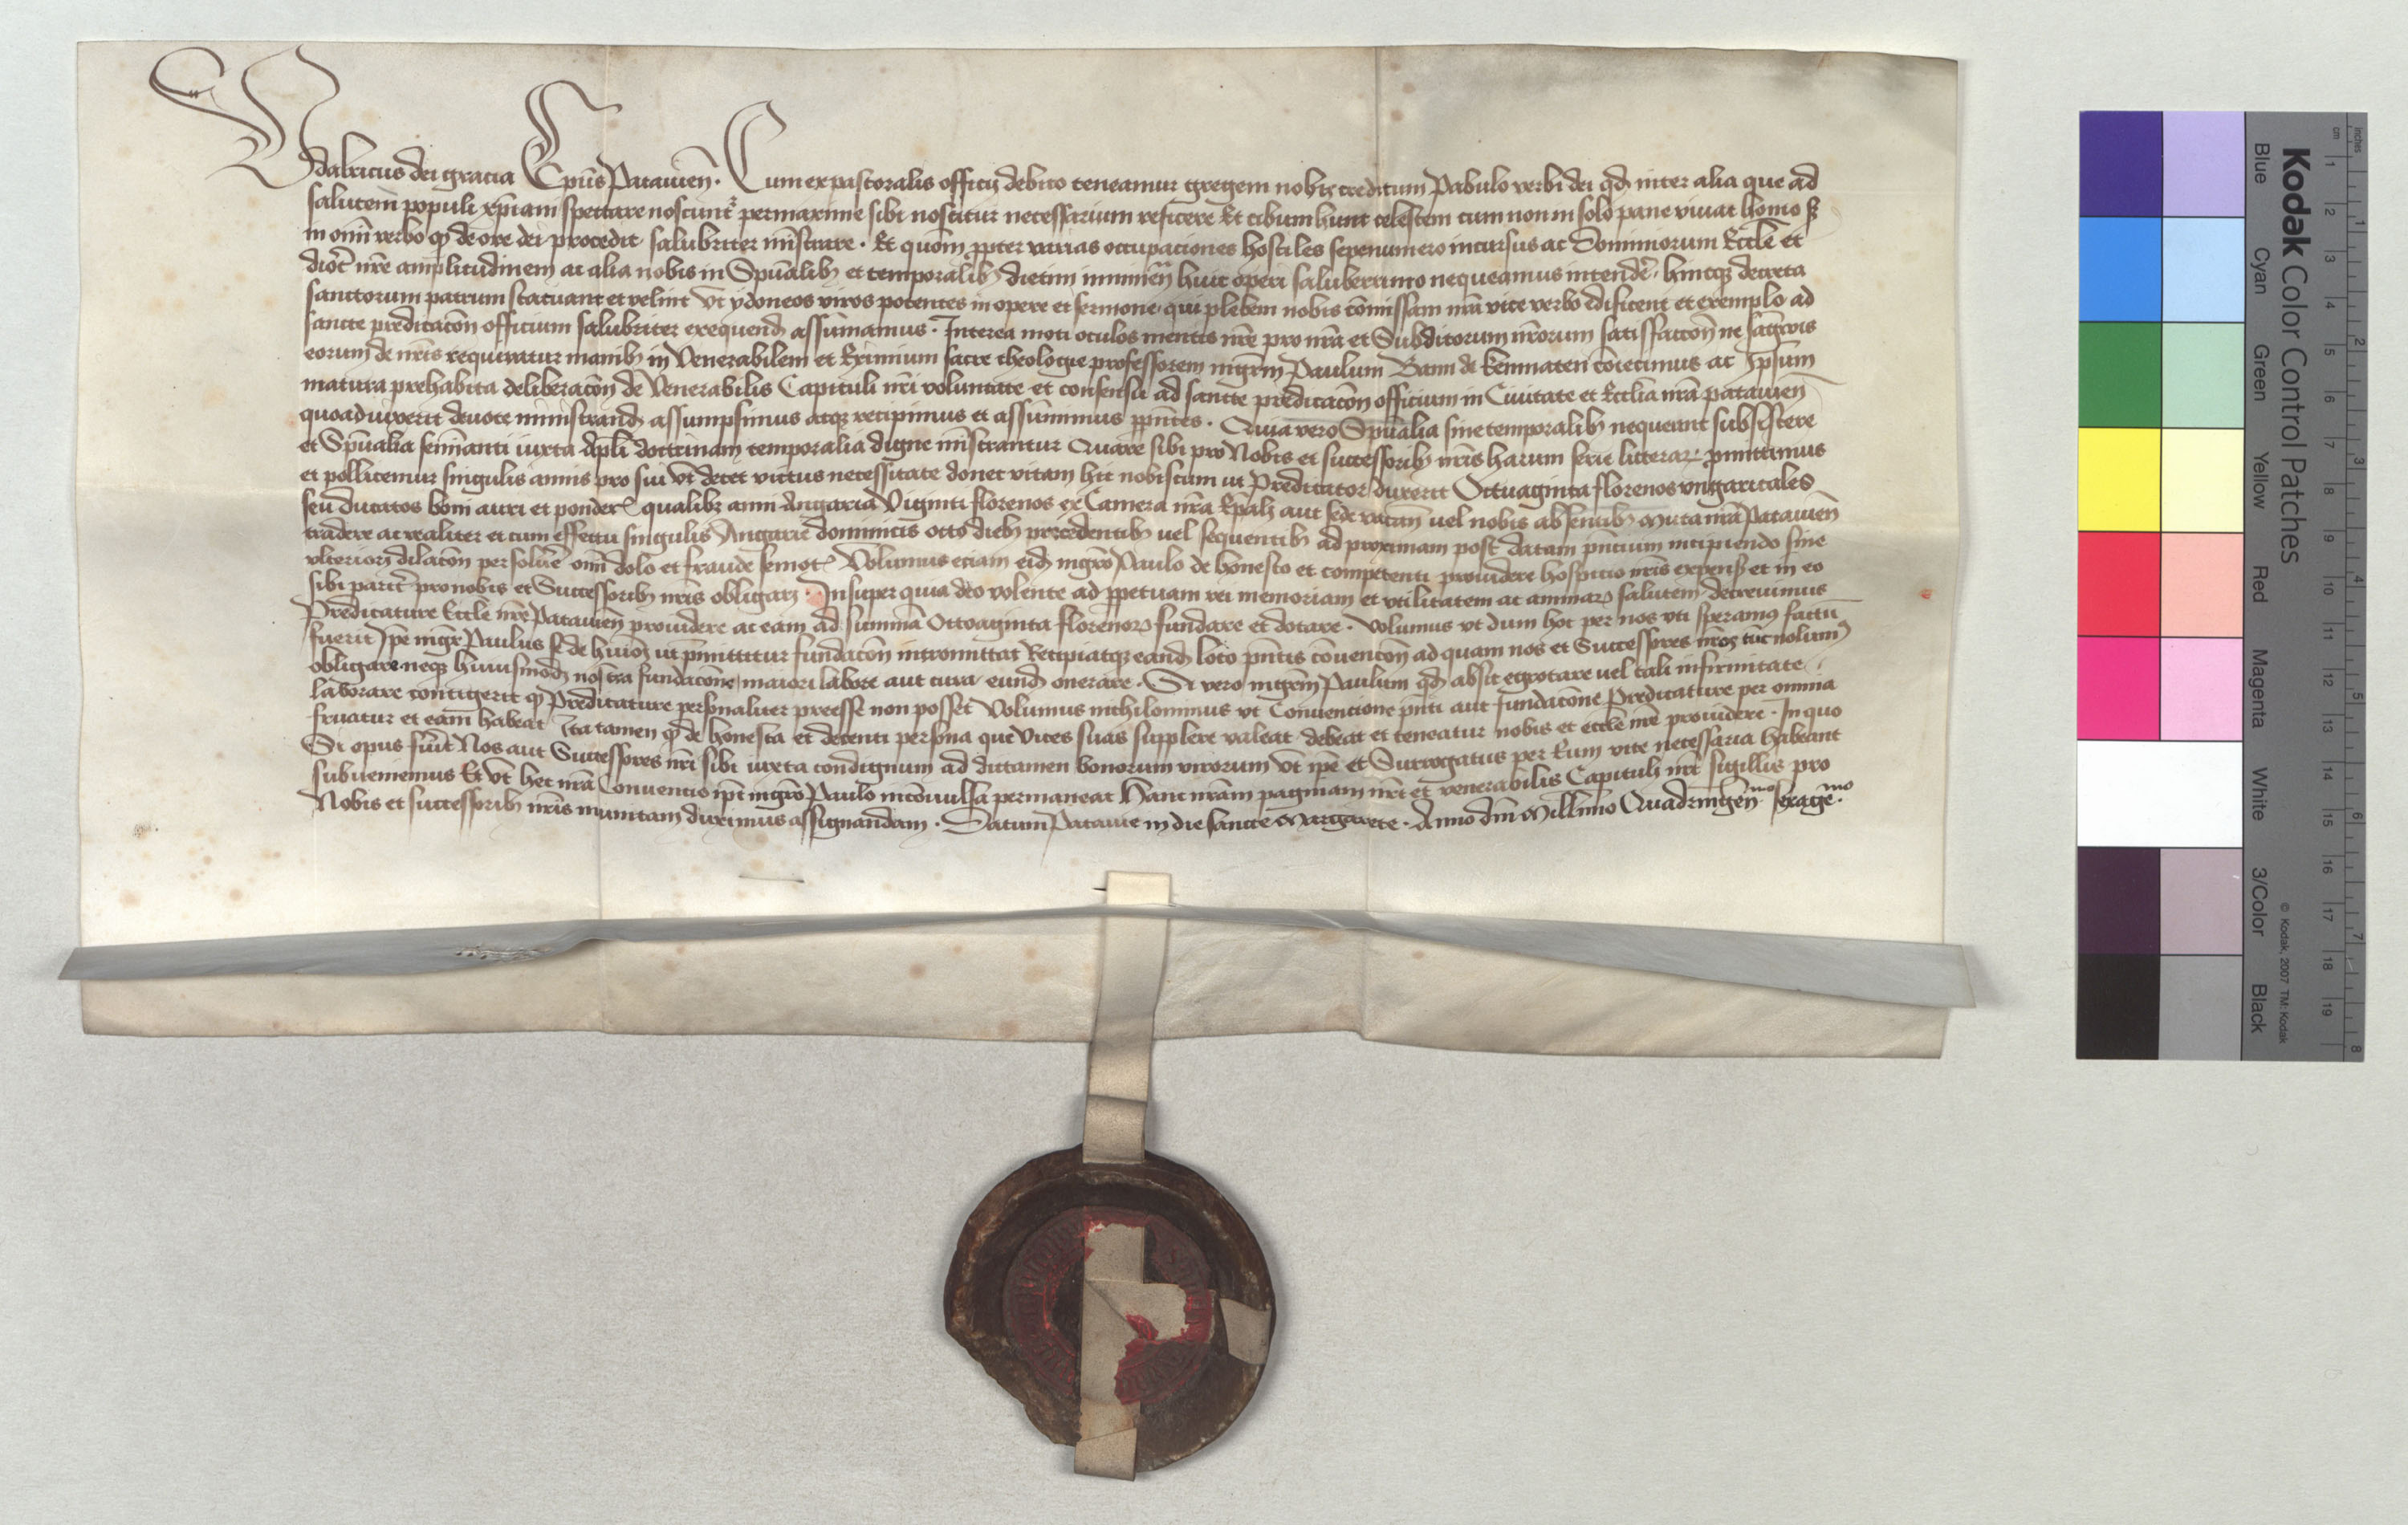 Udalricus dei gracia Ep̄us Patauien̄ . Cum ex pastoralis officij debito teneamur gregem nobis creditum Pabulo verbi dei qd̄ inter alia que ad
salutem populi xp̄iani spectare noscunt᷑ permaxime sibi noscitur necessarium reficere Et cibum hunc celestem cum non in solo pane viuat homo sꝫ
in om̄i verbo qd̄ de ore dei procedit salubriter mīstrare . Et quom̄ ꝓpter varias occupaciones hostiles sepenumero incursus ac Dominiorum Eccl̄e et
dioc̄ nr̄e amplitudinem ac alia nobis in Spūalibꝫ et temporalibꝫ dietim imminen̄ huic operi saluberrimo nequeamus intender̄ . hincqꝫ decreta
sanctorum patrum statuant et velint Vt ydoneos viros potentes in opere et sermone qui plebem nobis cōmissam nr̄a vice verbo edificent et exemplo ad
sancte predicacōn officium salubriter exequend̄ assūmamus . Interea moti oculos mentis nr̄e pro nr̄a et Subditorum nr̄orum satisfaccōn ne sāgwis
eorum de nr̄is requiratur manibꝫ in Venerabilem et Eximium sacre theologie professorem mgr̄m Paulum Wann de kemnaten cōiecimus ac Ipsum
matura prehabita deliberacōn de Venerabilis Capituli nr̄i voluntate et consensu ad sancte predicacōn officium in Ciuitate et Eccl̄ia nr̄a patauien̄
quoaduixerit deuote ministrand̄ assumpsimus atqꝫ recipimus et assūmimus ꝑn̄tes . Quia vero Spūalia sine temporalibꝫ nequeant subsistere
et Spūalia seminanti iuxta Apl̄i doctrinam temporalia digne mīstrantur Quare sibi pro Nobis et successoribꝫ nr̄is harum serie litterar᷑ ꝓmittimus
et pollicemur singulis annis pro sui vt decet victus necessitate donec vitam hic nobiscum ut Predicator duxerit Octuaginta florenos vngaricales
seu ducatos boni auri et ponder̄ qualibꝫ anni Angaria Viginti florenos ex Camera nr̄a Ep̄ali aut sede vacan̄ uel nobis absentibꝫ Muta nr̄a Patauien̄
tradere ac realiter et cum effectu singulis Angarie dominicis octo diebꝫ precedentibꝫ uel sequentibꝫ ad proximam post datam pn̄tium incipiendo sine
vlteriori dilacōn persoluer̄ om̄i dolo et fraude semot᷑ Volumus eciam eid̄ mgr̄o Paulo de honesto et competenti prouidere hospicio nr̄is expensꝫ et in eo
sibi parit᷑ pro nobis et Successoribꝫ nr̄is obligarj . Insuper quia deo volente ad ꝑpetuam rei memoriam et vtilitatem ac animarꝫ salutem decreuimus
Predicature Eccl̄e nr̄e Patauien̄ prouidere ac eam ad summā Octoaginta florenorꝫ fundare et dotare . Volumus vt dum hoc per nos vti speramꝰ factū
fuerit Ip̄e mgr̄ Paulus se de huiōi ut p̄mittitur fundacōn intromittat Recipiatqꝫ eand̄ loco pn̄tis cōuencōn ad quam nos et Successores nr̄os tūc nolumꝰ
obligare neqꝫ huiusmodi nostra fundacōne maiori labore aut cura eund̄ onerare . Si vero mgr̄m Paulum qd̄ absit egrotare uel tali infirmitate
laborare contigerit qd̄ Predicature personaliter preesse non posset Volumus nichilominus vt Conuencione pn̄ti aut fundacōne Predicature per omnia
fruatur et eam habeat Ita tamen qd̄ de honesta et decenti persona que Vices suas supplere valeat debeat et teneatur nobis et eccl̄e nr̄e prouidere . In quo
Si opus fuer̄t Nos aut Successores nr̄i sibi iuxta condignum ad dictamen bonorum virorum Vt ip̄e et Surrogatus per Eum vite necessaria habeant
subueniemus Et Vt hec nr̄a Conuencio ip̄i mgr̄o Paulo incōuulsa permaneat Hanc nr̄am paginam nr̄i et venerabilis Capituli nr̄i sigillis pro
Nobis et successoribꝫ nr̄is munitam duximus assignandam . Datum Patauie in die sancte Margarete . Anno dn̄i Millimo Quadringen̄mo sexage.mo
Kodak Color Control Patches
Blue Cyan Green Yellow Red Magenta White 3/Color Black
© Kodak, 2007 TM: Kodak
cm 1 2 3 4 5 6 7 8 9 10 11 12 13 14 15 16 17 18 19
inches 1 2 3 4 5 6 7 8